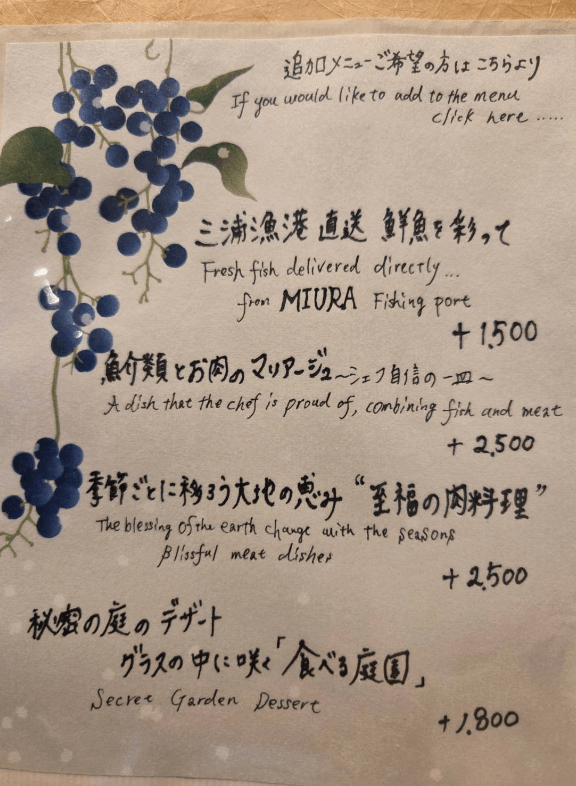 追加メニューご希望の方はこちらより
If you would like to add to the menu
click here .....
三浦漁港 直送 鮮魚を彩って
Fresh fish delivered directly...
from MIURA Fishing port
+1,500
魚介類とお肉のマリアージュ〜シェフ自信の一皿〜
A dish that the chef is proud of, combining fish and meat
+2,500
季節ごとに移ろう大地の恵み “至福の肉料理”
The blessing of the earth change with the seasons
Blissful meat dishes
+2,500
秘密の庭の デザート
グラスの中に咲く「食べる庭園」
Secret Garden Dessert
+1,800